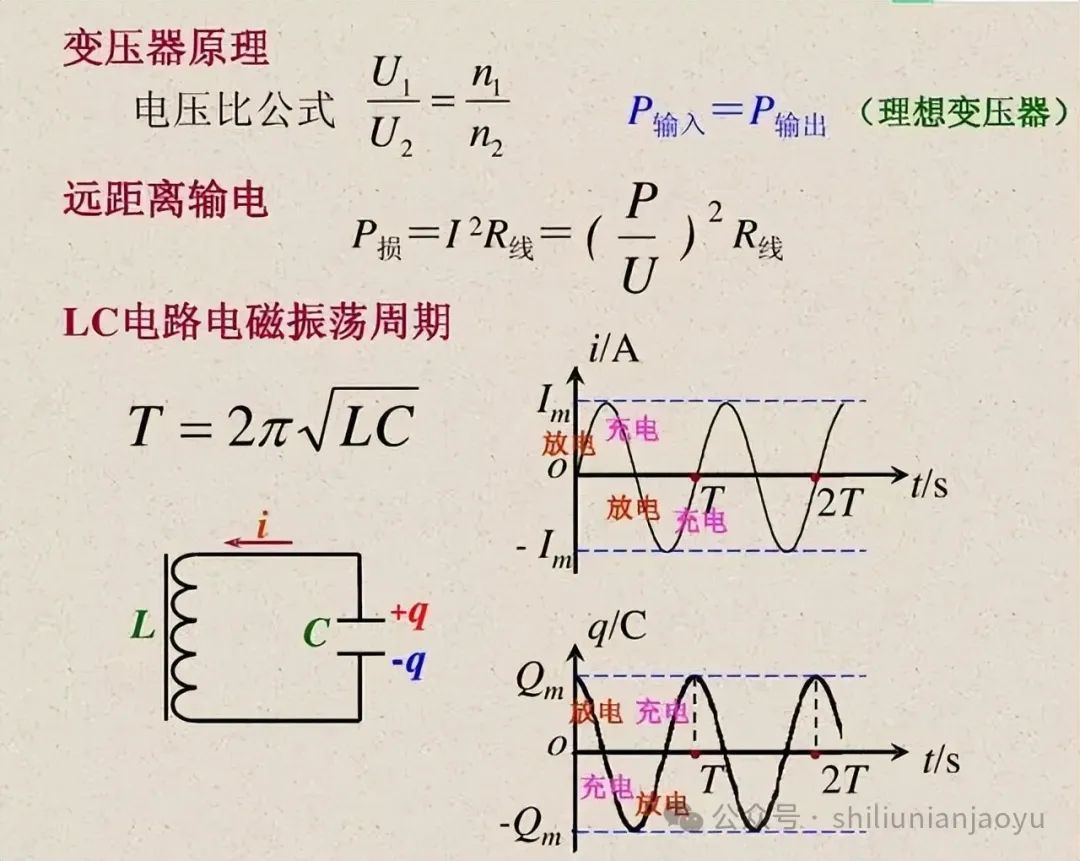 变压器原理
电压比公式 U₁/U₂ = n₁/n₂ P输入=P输出 (理想变压器)
远距离输电
P损=I²R线=(P/U)²R线
LC电路电磁振荡周期
T = 2π√LC
i/A
Iₘ
放电 充电
o
T 2T t/s
放电 充电
- Iₘ
i
L
C
+q
-q
q/C
Qₘ
放电 充电
o
T 2T t/s
充电 放电
-Qₘ
公众号 · shiliunianjaoyu